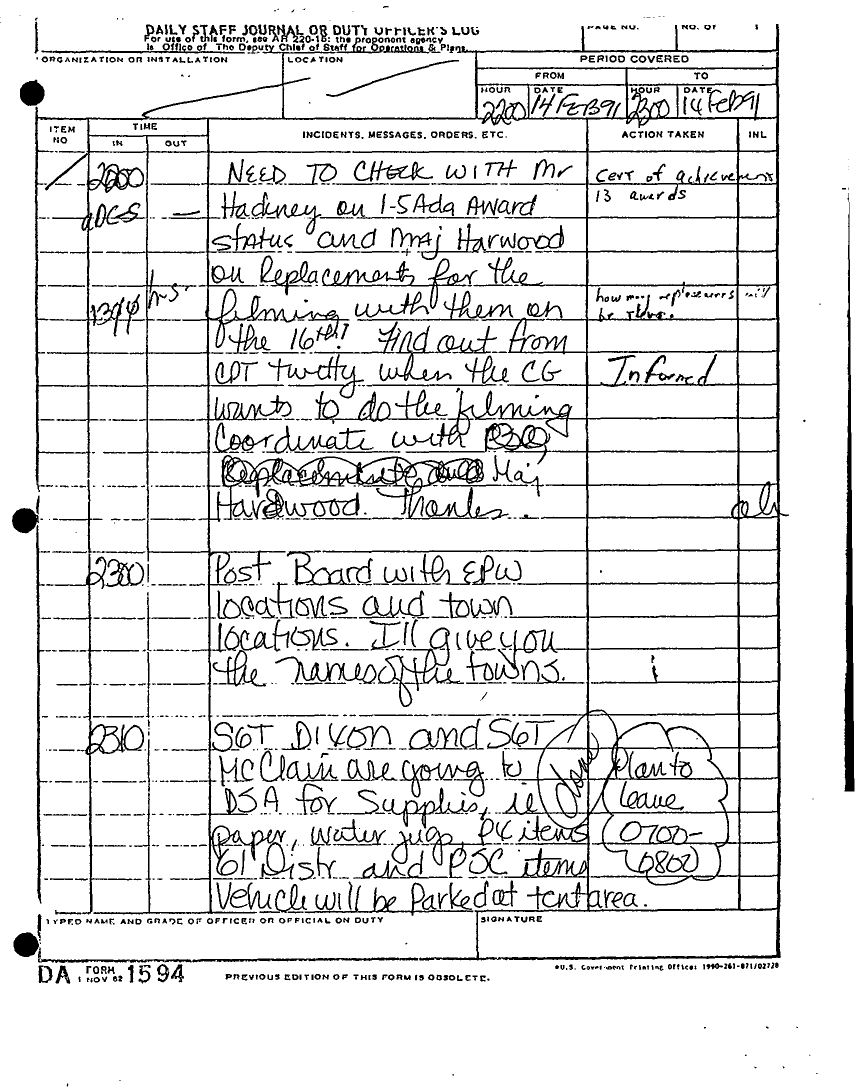 DAILY STAFF JOURNAL OR DUTY OFFICER'S LOG
For use of this form, see AR 220-15; the proponent agency
is Office of The Deputy Chief of Staff for Operations & Plans.
PAGE NO. NO. OF
ORGANIZATION OR INSTALLATION LOCATION PERIOD COVERED
FROM TO
HOUR DATE HOUR DATE
2200 14 FEB 91 2300 14 FEB 91
ITEM NO TIME INCIDENTS, MESSAGES, ORDERS, ETC. ACTION TAKEN INL
IN OUT
2200 NEED TO CHECK WITH Mr Cert of achievement
Hackney on 1-5 Ada Award 13 awards
status and Maj Harwood
on Replacements for the
hrs. filming with them on how many replacements will
the 16th! Find out from be there.
CPT Twitty when the CG Informed
wants to do the filming
Coordinate with
Maj
Hardwood. Thanks.
2300 Post Board with EPW
locations and town
locations. I'll give you
the names of the towns.
2310 SGT DIXON and SGT done
McClain are going to Plan to
DSA for Supplies, ie leave
paper, water jugs, PX items 0700-
61 Distr and PSC items 0800
Vehicle will be Parked at tent area.
TYPED NAME AND GRADE OF OFFICER OR OFFICIAL ON DUTY SIGNATURE
DA FORM 1 NOV 62 1594 PREVIOUS EDITION OF THIS FORM IS OBSOLETE. *U.S. Government Printing Office: 1990-261-871/02728